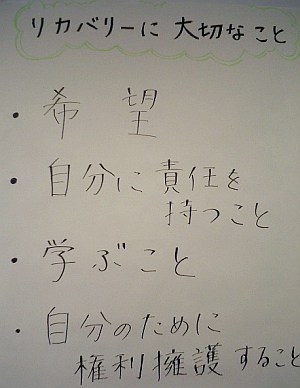 リカバリーに 大切なこと
・希望
・自分に責任を
持つこと
・学ぶこと
・自分のために
権利擁護すること